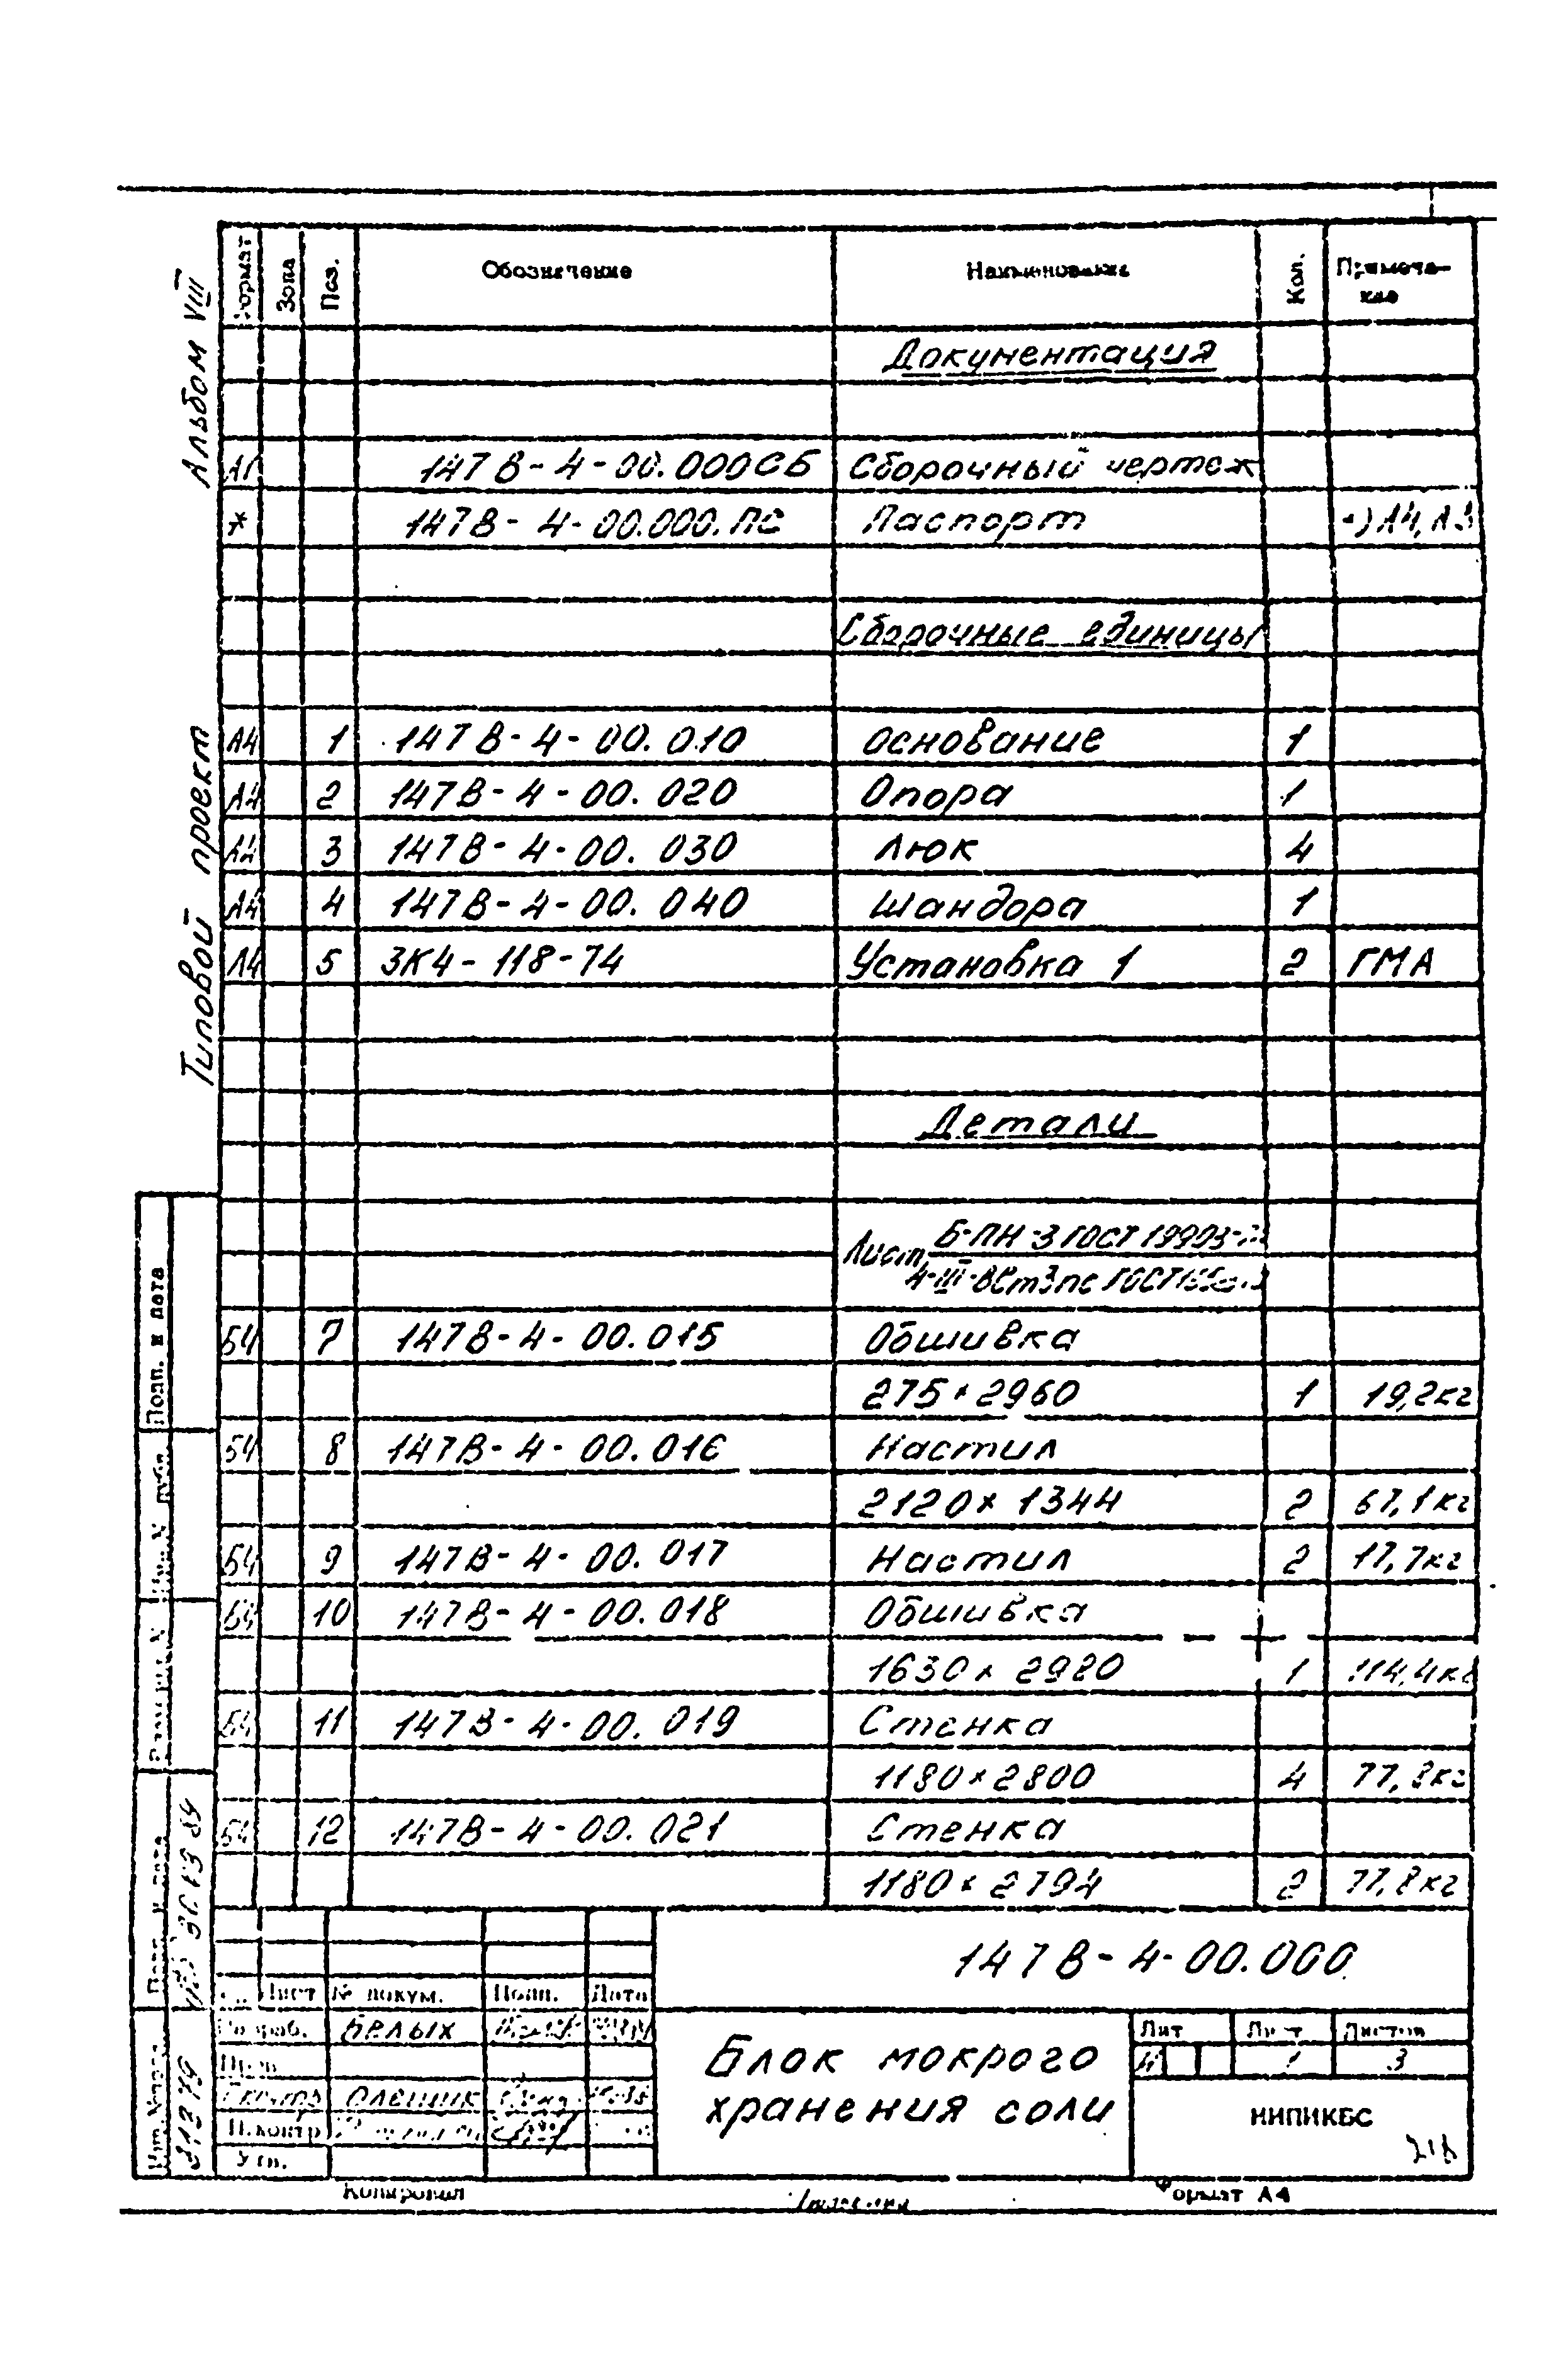 Альбом VIII
Типовой проект
Формат Зона Поз. Обозначение Наименование Кол. Примечание
Документация
А1 147В-4-00.000СБ Сборочный чертеж
* 147В-4-00.000.ПС Паспорт *) А4, А3
Сборочные единицы
А4 1 147В-4-00.010 Основание 1
А4 2 147В-4-00.020 Опора 1
А4 3 147В-4-00.030 Люк 4
А4 4 147В-4-00.040 Шандора 1
А4 5 ЗК4-118-74 Установка 1 2 ГМА
Детали
Лист Б-ПН-3 ГОСТ 19903-
4-III-ВСт3пс ГОСТ
Б4 7 147В-4-00.015 Обшивка
275×2960 1 19,2кг
Б4 8 147В-4-00.016 Настил
2120×1344 2 67,1кг
Б4 9 147В-4-00.017 Настил 2 17,7кг
Б4 10 147В-4-00.018 Обшивка
1630×2980 1 114,4кг
Б4 11 147В-4-00.019 Стенка
1180×2800 4 77,8кг
Б4 12 147В-4-00.021 Стенка
1180×2794 2 77,8кг
147В-4-00.000
Лист № докум. Подп. Дата
Разраб. Белых
Пров.
Т.контр. Олейник
Н.контр.
Утв.
Блок мокрого
хранения соли
Лит Лист Листов
И 1 3
НИПИКБС
218
Копировал
Формат А4
Подп. и дата
Инв. № дубл.
Взам. инв. №
Подп. и дата
Инв. № подл.